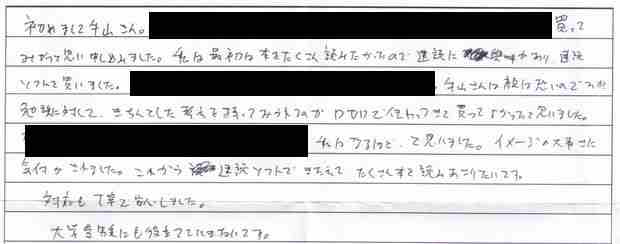 初めまして牛山さん。 買って
みようと思い申し込みました。私は最初は本をたくさん読みたかったので速読に興味があり、速読
ソフトを買いました。 牛山さんは顔は恐いのですが
勉強に対して、きちんとした考えを持ってみえるのが 伝わってきて買ってよかったと思いました。
私はなるほど、と思いました。イメージの大事さに
気付かされました。これから速読ソフトできたえて たくさん本を読みあさりたいです。
対応も丁寧で安心しました。
大学受験にも役立てていきたいです。